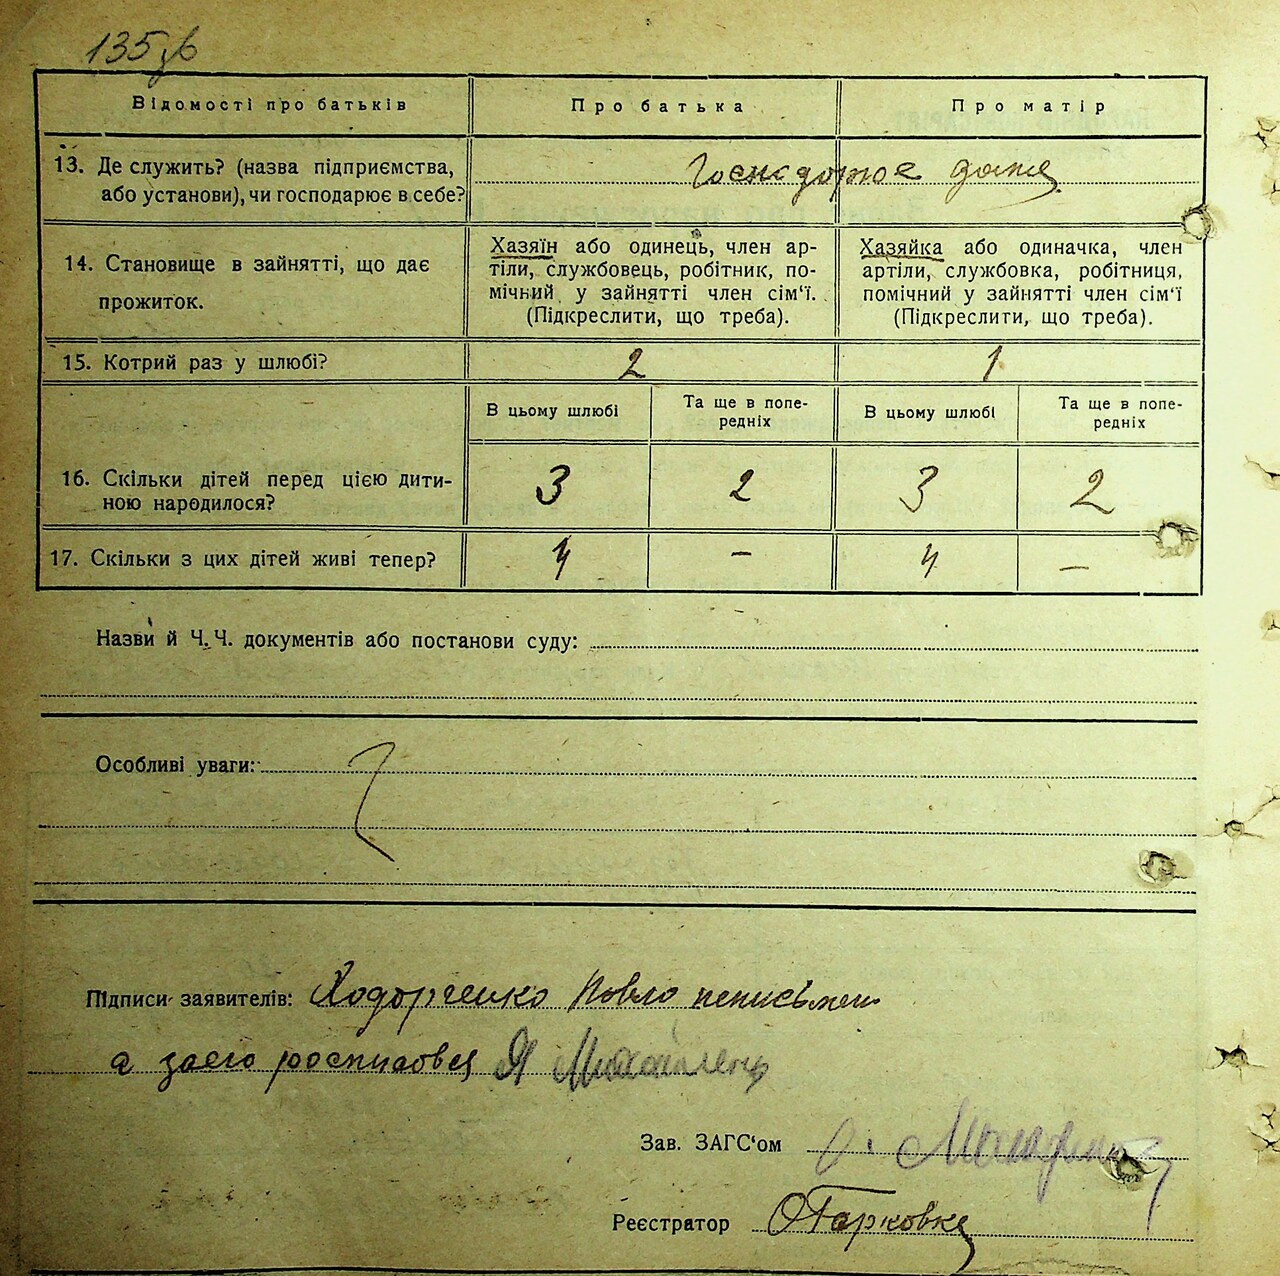 135 зв
Відомості про батьків
Про батька
Про матір
13. Де служить? (назва підприємства,
або установи), чи господарює в себе?
Господорює дома
14. Становище в зайнятті, що дає
прожиток.
Хазяїн або одинець, член ар-
тіли, службовець, робітник, по-
мічний у зайнятті член сім'ї.
(Підкреслити, що треба).
Хазяйка або одиначка, член
артіли, службовка, робітниця,
помічний у зайнятті член сім'ї
(Підкреслити, що треба).
15. Котрий раз у шлюбі?
2
1
В цьому шлюбі
Та ще в попе-
редніх
В цьому шлюбі
Та ще в попе-
редніх
16. Скільки дітей перед цією дити-
ною народилося?
3
2
3
2
17. Скільки з цих дітей живі тепер?
4
–
4
–
Назви й Ч.Ч. документів або постанови суду:
Особливі уваги:
Підписи заявителів: Ходорченко Повло неписьмен
а заего росписовся Я
Зав. ЗАГС'ом
Реєстратор